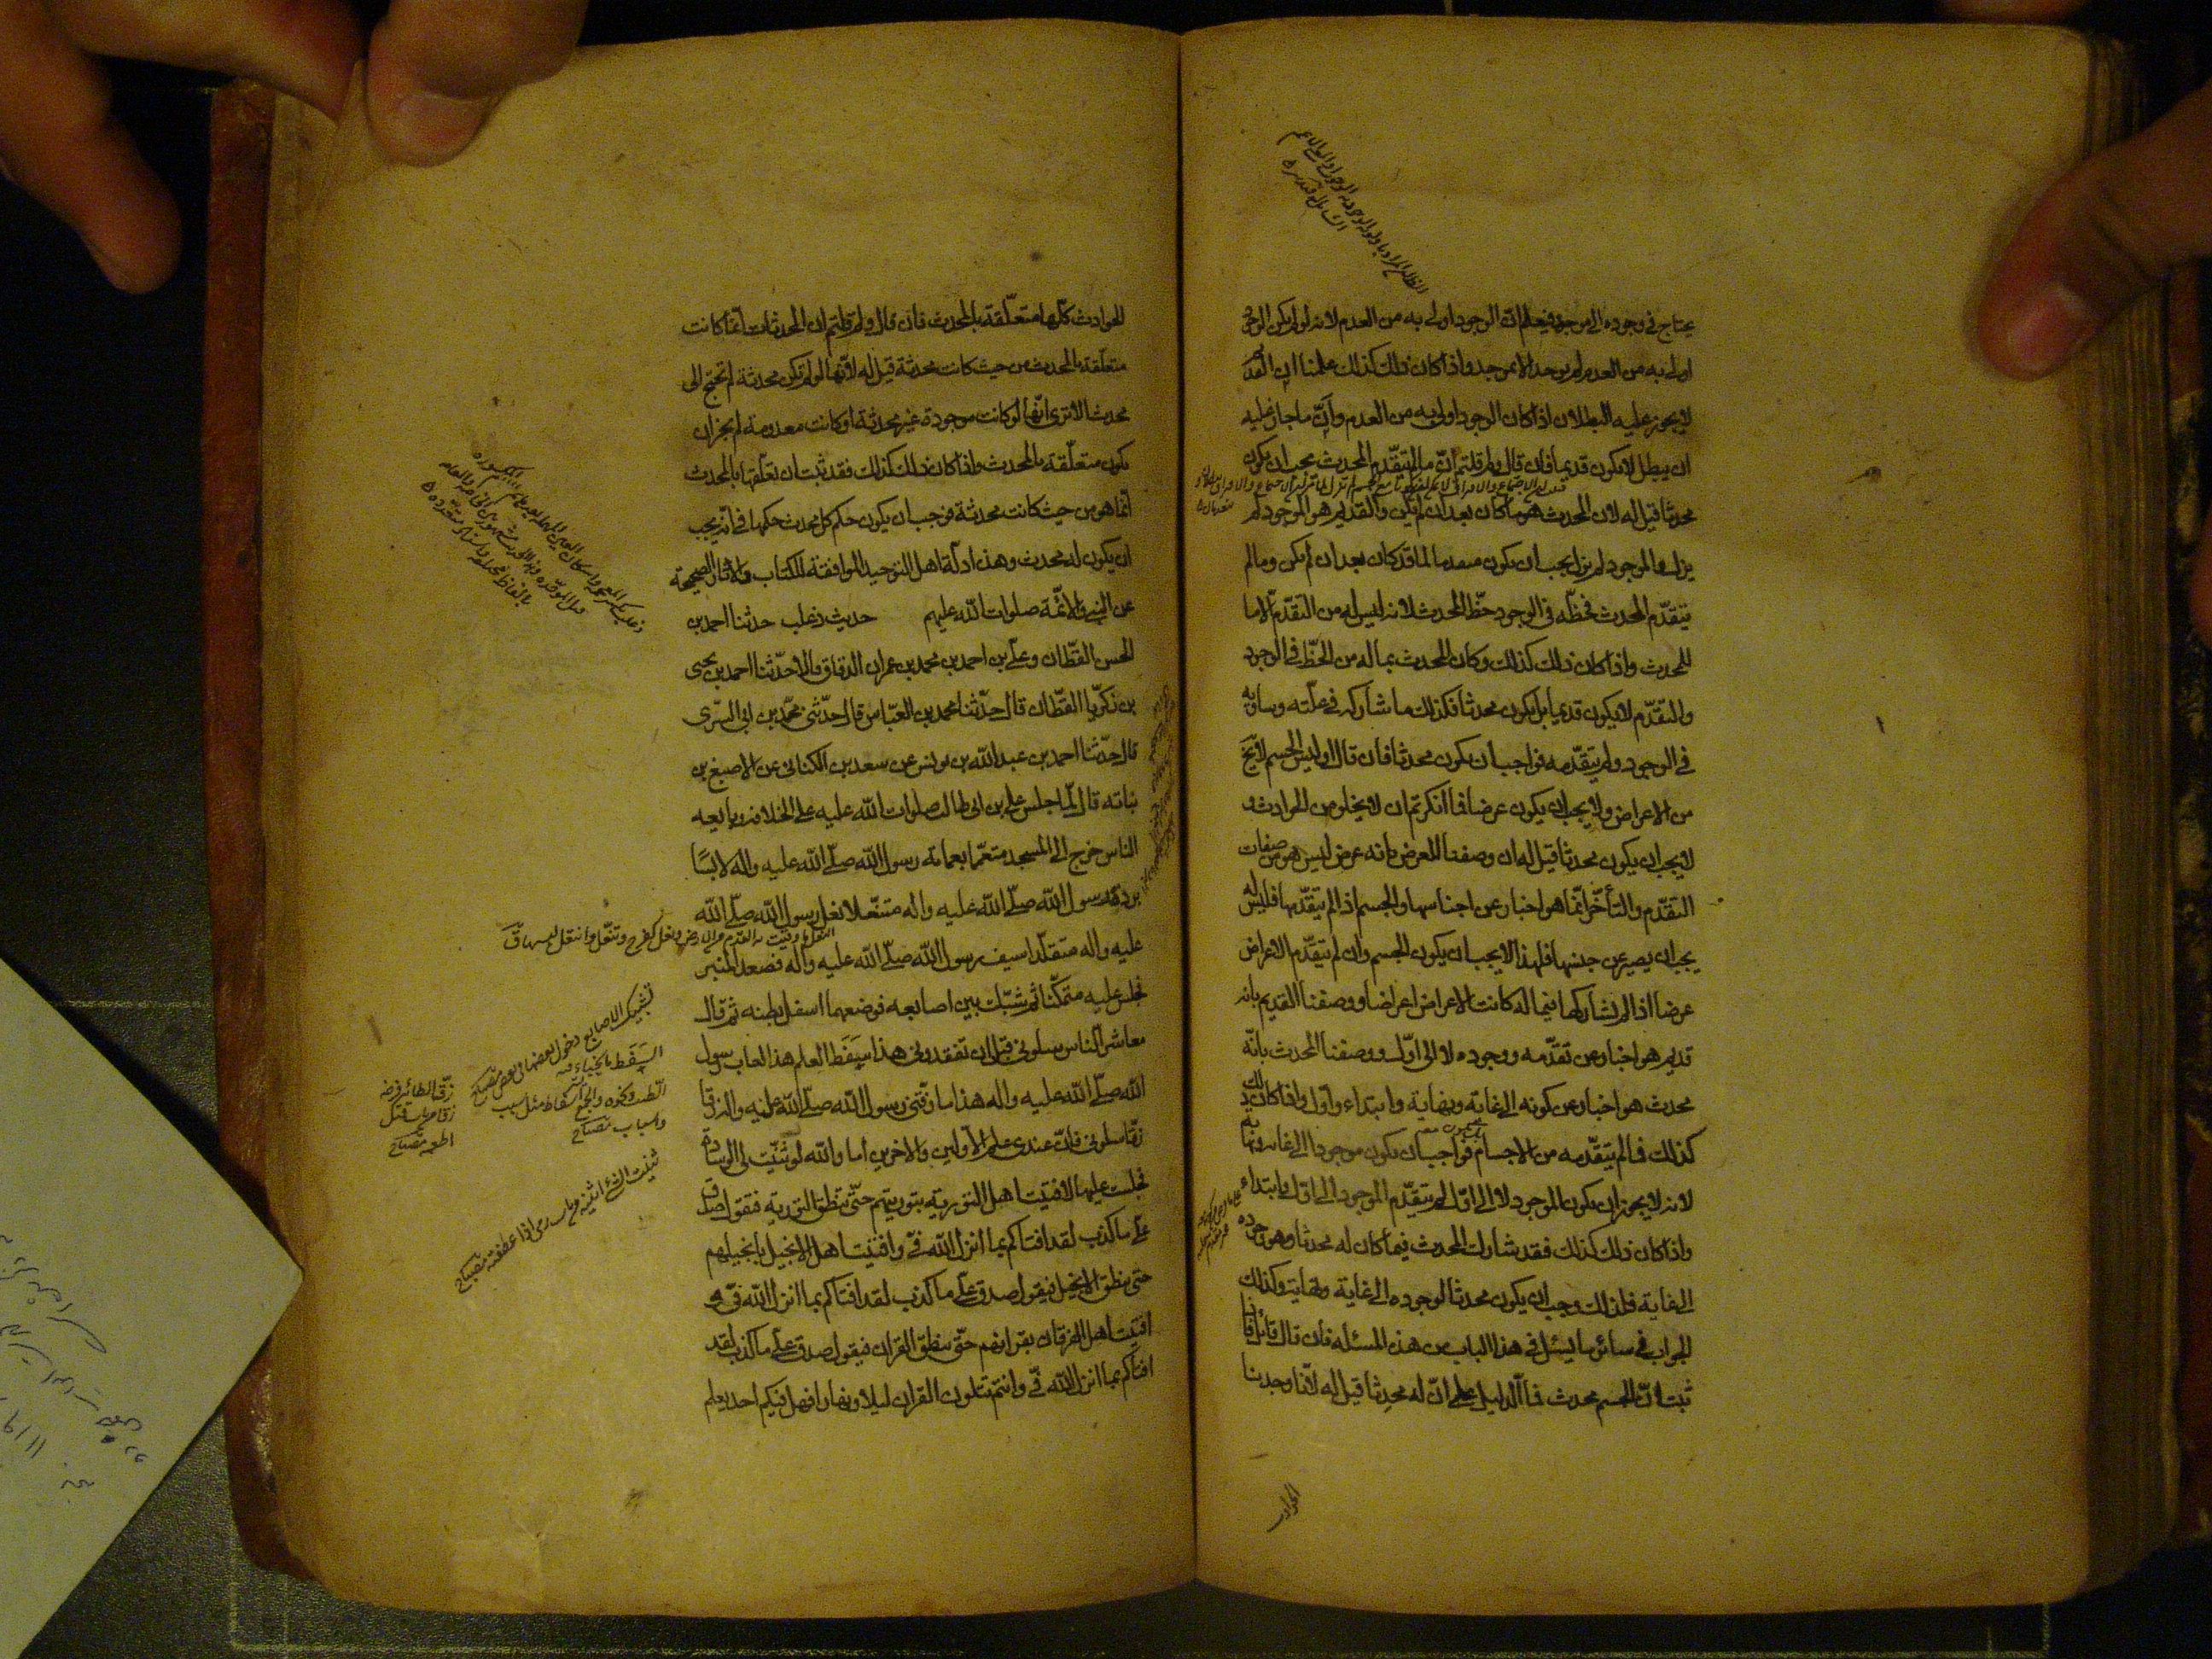 يحتاج في وجوده الى موجد فيعلم ان الوجود اولى به من العدم لانه لو لم يكن الوجود
اولى به من العدم لم يوجد الا بموجد واذا كان ذلك كذلك علمنا ان القديم
لا يجوز عليه البطلان اذا كان الوجود اولى به من العدم وان ما جاز عليه
ان يبطل لا يكون قديما فان قال ولم قلتم ان ما لم يتقدم المحدث يجب ان يكون
محدثا قيل له لان المحدث هو ما كان بعد ان لم يكن والقديم هو الموجود لم
يزل والموجود لم يزل يجب ان يكون متقدما لما قد كان بعد ان لم يكن وما لم
يتقدم المحدث فحظه في الوجود حظ المحدث لانه ليس له من التقدم الا ما
للمحدث واذا كان ذلك كذلك وكان المحدث بما له من الحظ في الوجود
والتقدم لا يكون قديما بل يكون محدثا فكذلك ما شاركه في علته وساواه
في الوجود ولم يتقدمه فواجب ان يكون محدثا فان قال اوليس الجسم لا يخلو
من الاعراض ولا يجب ان يكون عرضا فما انكرتم ان لا يخلو من الحوادث و
لا يجب ان يكون محدثا قيل له ان وصفنا العرض بانه عرض ليس هو من صفات
التقدم والتأخر انما هو اخبار عن اجناسها والجسم اذا لم يتقدمها فليس
يجب ان يصير من جنسها فلهذا لا يجب ان يكون الجسم وان لم يتقدم الاعراض
عرضا اذا لم يشاركها فيما له كانت الاعراض اعراضا ووصفنا القديم بانه
قديم هو اخبار عن تقدمه ووجوده لا الى اول ووصفنا المحدث بانه
محدث هو اخبار عن كونه الى غاية ونهاية وابتداء واول واذا كان ذلك
كذلك فما لم يتقدمه من الاجسام فواجب ان يكون موجودا الى غاية ونهاية
لانه لا يجوز ان يكون الموجود لا الى اول لم يتقدم الموجود الى اول وابتداء
واذا كان ذلك كذلك فقد شارك المحدث فيما كان له محدثا وهو وجوده
الى غاية فلذلك وجب ان يكون محدثا لوجوده الى غاية ونهاية وكذلك
الجواب في سائر ما يسئل في هذا الباب من هذه المسئله فان قال قائل فاذا
ثبت ان الجسم محدث فما الدليل على ان له محدثا قيل له لانا وجدنا
الحوادث
الحوادث كلها متعلقة بالمحدث فان قال ولم قلتم ان المحدثات انما كانت
متعلقة بالمحدث من حيث كانت محدثة قيل له لانها لو لم تكن محدثة لم تحتج الى
محدث الا ترى انها لو كانت موجودة غير محدثة او كانت معدومة لم يجز ان
يكون متعلقة بالمحدث واذا كان ذلك كذلك فقد ثبت ان تعلقها بالمحدث
انما هو من حيث كانت محدثة فوجب ان يكون حكم كل محدث حكمها في انه يجب
ان يكون له محدث وهذه ادلة اهل التوحيد الموافقة للكتاب والاثار الصحيحة
عن النبي والائمة صلوات الله عليهم حديث ذعلب حدثنا احمد بن
الحسن القطان وعلي بن احمد بن محمد بن عمران الدقاق قالا حدثنا احمد بن يحيى
بن زكريا القطان قال حدثنا محمد بن العباس قال حدثني محمد بن ابي السرى
قال حدثنا احمد بن عبد الله بن يونس عن سعد بن الكناني عن الاصبغ بن
نباته قال لما جلس علي بن ابي طالب صلوات الله عليه على الخلافه وبايعه
الناس خرج الى المسجد متعمما بعمامة رسول الله صلى الله عليه واله لابسا
بردة رسول الله صلى الله عليه واله متنعلا نعل رسول الله صلى الله
عليه واله متقلدا سيف رسول الله صلى الله عليه واله فصعد المنبر
فجلس عليه متمكنا ثم شبك بين اصابعه فوضعهما اسفل بطنه ثم قال
معاشر الناس سلوني قبل ان تفقدوني هذا سفط العلم هذا لعاب رسول
الله صلى الله عليه واله هذا ما زقني رسول الله صلى الله عليه واله زقا
زقا سلوني فان عندي علم الاولين والاخرين اما والله لو ثنيت لي الوسادة
فجلست عليها لافتيت اهل التورية بتوريتهم حتى تنطق التورية فتقول صدق
علي ما كذب لقد افتاكم بما انزل الله في وافتيت اهل الانجيل بانجيلهم
حتى ينطق الانجيل فيقول صدق علي ما كذب لقد افتاكم بما انزل الله في و
افتيت اهل الفرقان بقرانهم حتى ينطق القران فيقول صدق علي ما كذب لقد
افتاكم بما انزل الله في وانتم تتلون القران ليلا ونهارا فهل فيكم احد يعلم
تشبيك الاصابع دخول بعضها في بعض مصباح
زق الطائر فرخه
زقا من باب قتل
اطعمه مصباح
ثنيت الشئ اثنيه من باب رمى اذا عطفته مصباح